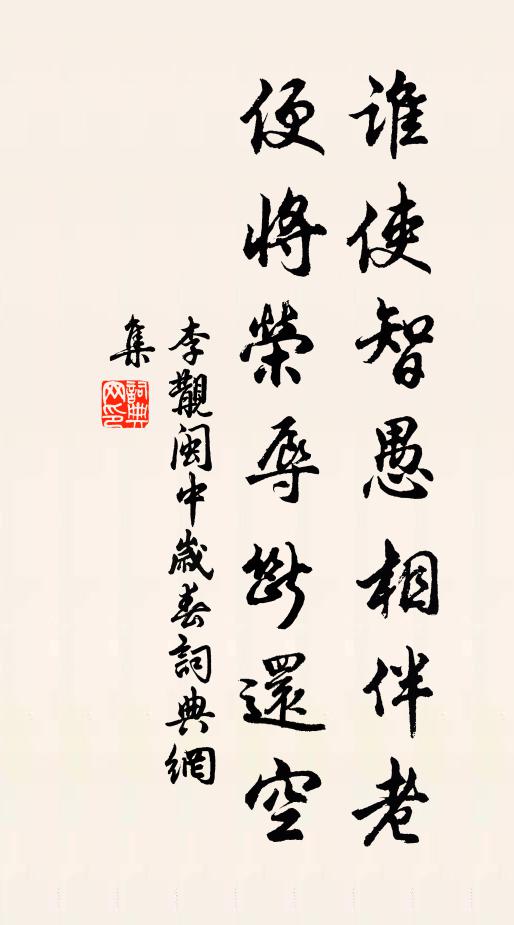 誰使智愚相伴老
便將榮辱斷還空
李覯閩中歲春詞典網
集
詞典
网印